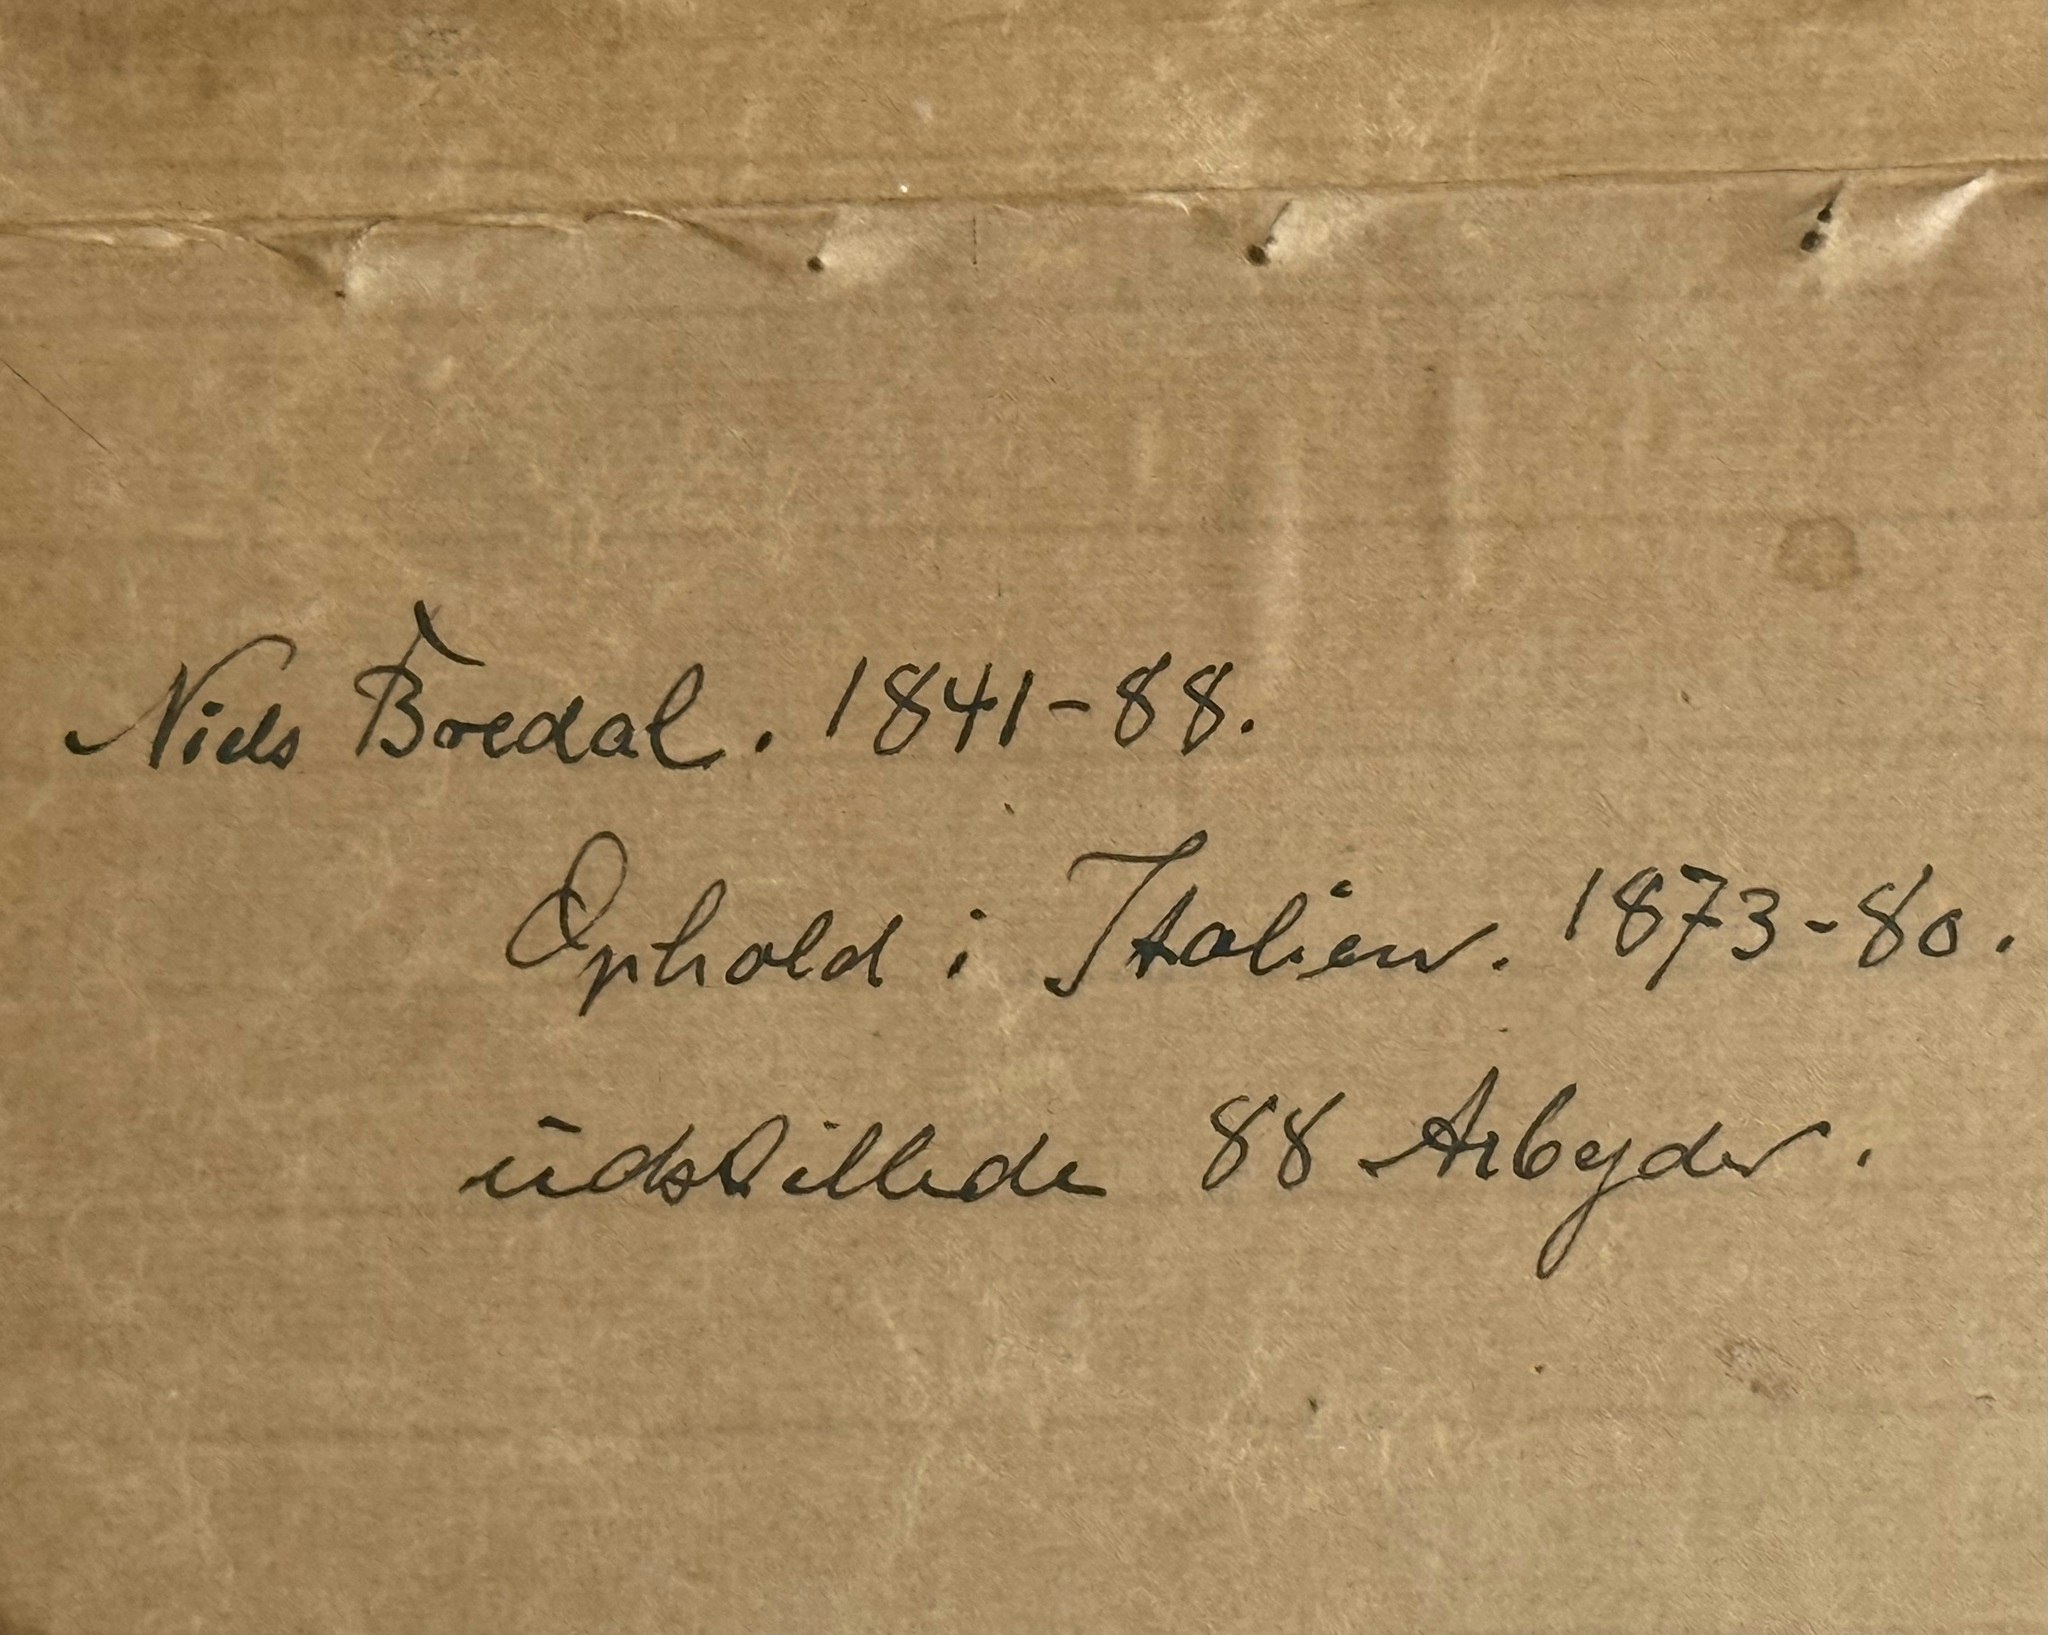 Niels Bredal. 1841-88.
Ophold i Italien. 1873-80.
udstillede 88 Arbejder.